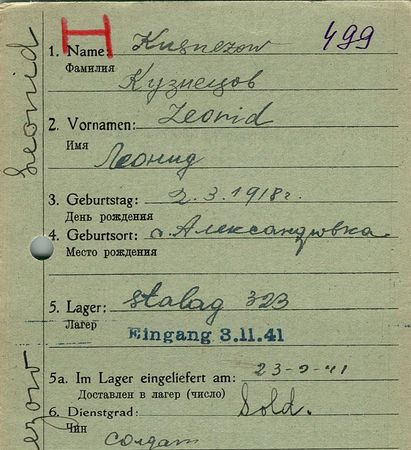 499
1. Name: Kusnezow
Фамилия
Кузнецов
2. Vornamen: Leonid
Имя
Леонид
3. Geburtstag: 2.3.1918г.
День рождения
4. Geburtsort: с. Александровка
Место рождения
5. Lager: Stalag 323
Лагер
Eingang 3.11.41
5a. Im Lager eingeliefert am:
Доставлен в лагер (число)
6. Dienstgrad: Sold.
Чин
солдат
Leonid